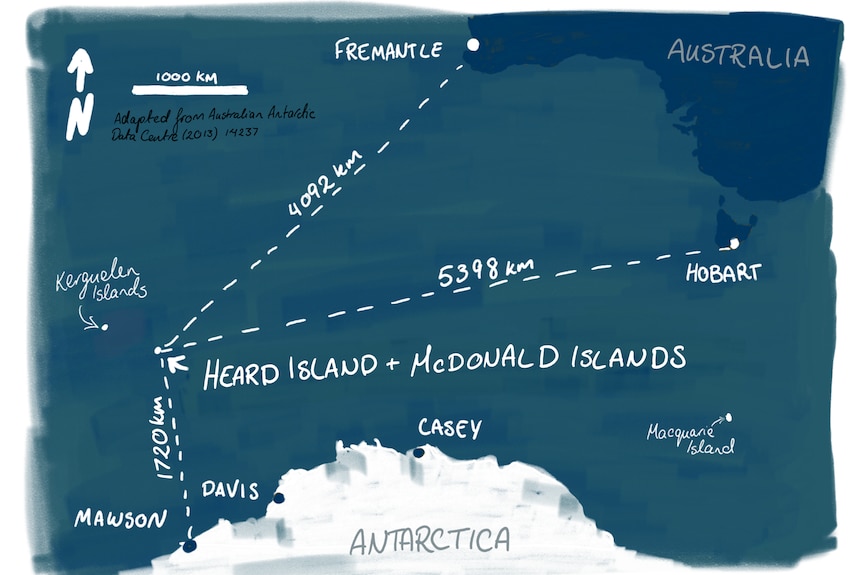 FREMANTLE
AUSTRALIA
1000 KM
N
Adapted from Australian Antarctic
Data Centre (2013) 14237
4092 km
Kerguelen
Islands
5398 km
HOBART
HEARD ISLAND + McDONALD ISLANDS
1720 km
CASEY
Macquarie
Island
DAVIS
MAWSON
ANTARCTICA